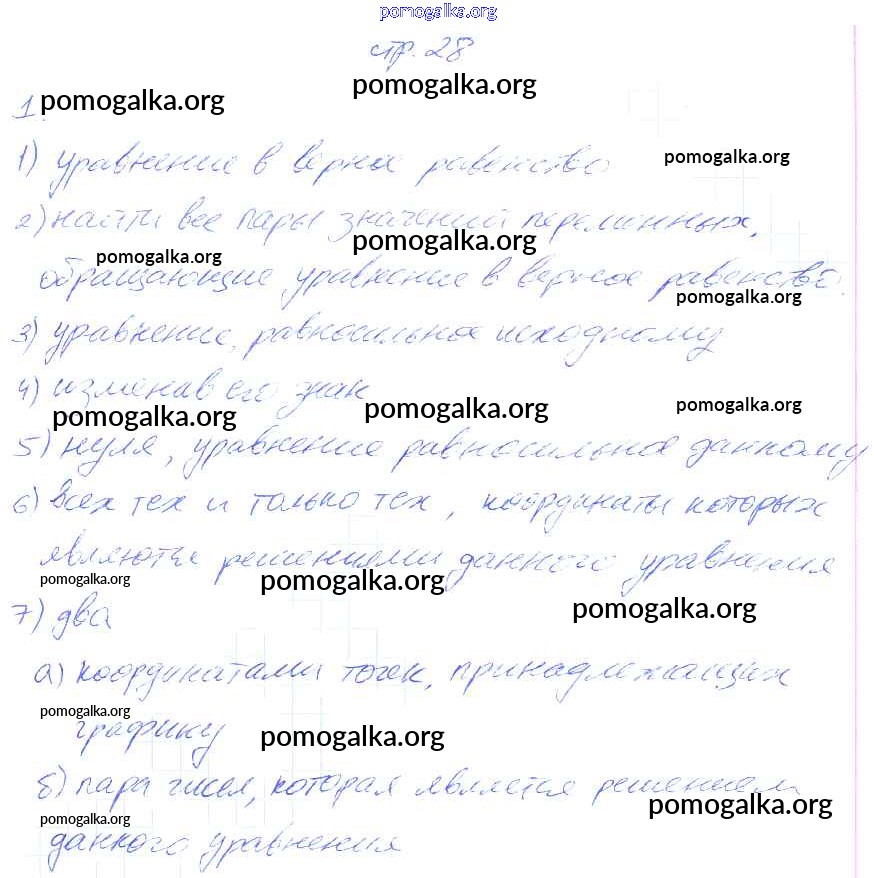 pomogalka.org
стр. 28
pomogalka.org
1. pomogalka.org
1) уравнение в верное равенство
pomogalka.org
2) найти все пары значений переменных,
pomogalka.org
pomogalka.org
обращающие уравнение в верное равенство.
pomogalka.org
3) уравнение, равносильное исходному
4) изменив его знак
pomogalka.org pomogalka.org pomogalka.org
5) нуля, уравнение равносильное данному
6) всех тех и только тех, координаты которых
являются решениями данного уравнения
pomogalka.org pomogalka.org
pomogalka.org
7) два
а) координатами точек, принадлежащих
pomogalka.org
графику
pomogalka.org
б) пара чисел, которая является решением
pomogalka.org
pomogalka.org
данного уравнения